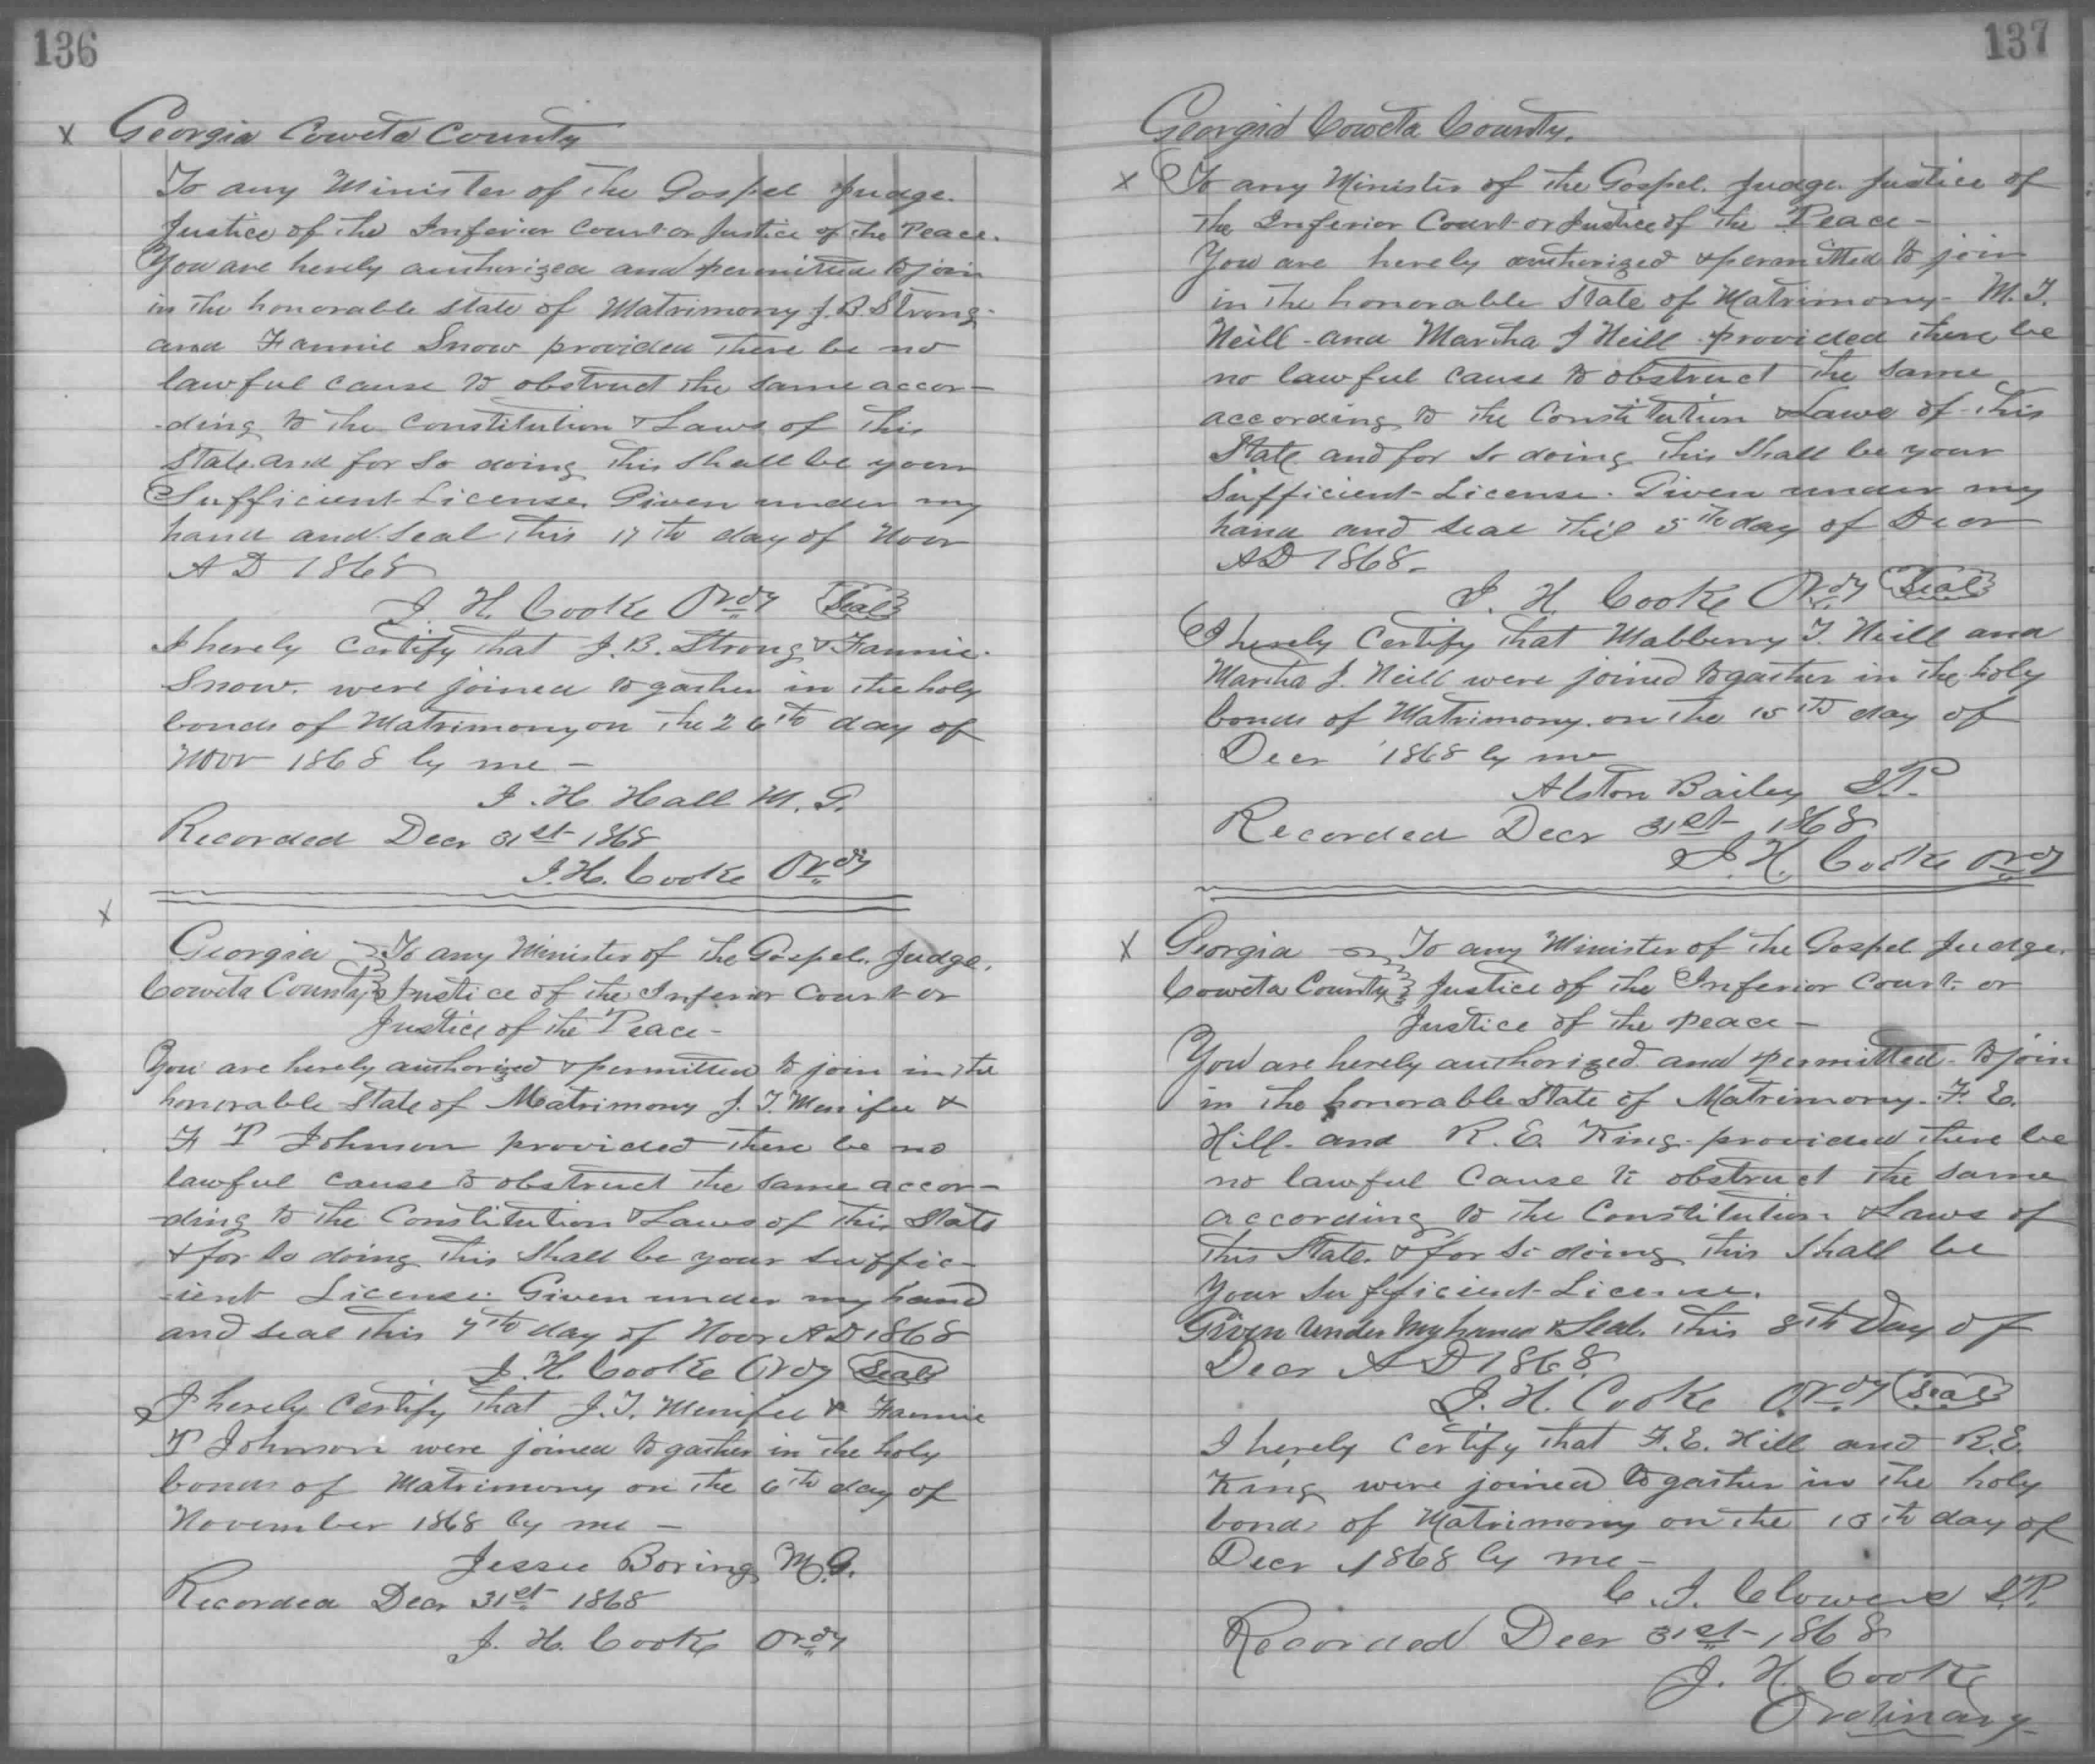 136
Georgia Coweta County
To any Minister of the Gospel Judge.
Justice of the Inferior Court or Justice of the Peace.
You are herely authorized and permitted to join
in the honorable state of Matrimony J. B Strong-
and Fannie Snow provided there be no
lawful cause to obstruct the same accor-
-ding to the Constitution & Laws of this
State and for so doing this shall be your
Sufficient License. Given under my
hand and seal this 17th day of Novr
A D 1868
J. H. Cooke Ordy Seal
I herely Certify that J. B. Strong & Fannie
Snow. were joined togather in the holy
bonds of Matrimony on the 26th day of
Novr 1868 by me -
J. H Hall M. G.
Recorded Decr 31st 1868
J. H. Cooke Ordy
Georgia To any Minister of the Gospel. Judge.
Coweta County Justice of the Inferior Court or
Justice of the Peace -
You are herely authorized & permitted to join in the
honorable State of Matrimony J. T. Menifee &
F P Johnson provided there be no
lawful cause to obstruct the same accor-
-ding to the Constitution & Laws of this State
& for so doing this shall be your suffic-
-ient License. Given under my hand
and seal this 4th day of Novr A D 1868
J. H Cooke Ordy Seal
I herely Certify that J. T. Menifee & Fannie
P Johnson were joined togather in the holy
bonds of Matrimony on the 6th day of
November 1868 by me -
Jessee Boring M. G.
Recorded Decr 31st 1868
J. H. Cooke Ordy
137
Georgia Coweta County.
To any Minister of the Gospel. Judge. Justice of
the Inferior Court or Justice of the Peace -
You are herely authorized & permitted to join
in the honorable State of Matrimony - M. T.
Neill - and Martha J Neill provided there be
no lawful cause to obstruct the same
according to the Constitution & Laws of this
State and for so doing this shall be your
Sufficient License. Given under my
hand and seal this 5th day of Decr
A D 1868.
J. H. Cooke Ordy Seal
I herely Certify that Mabberry T. Neill and
Martha J. Neill were joined togather in the holy
bonds of Matrimony. on the 15th day of
Decr 1868 by me
Alston Bailey J. P.
Recorded Decr 31st 1868
J. H. Cooke Ordy
Georgia To any Minister of the Gospel Judge.
Coweta County Justice of the Inferior Court or
Justice of the peace -
You are herely authorized and permitted to join
in the honorable State of Matrimony. F. E.
Hill. and R. E. King provided there be
no lawful Cause to obstruct the same
according to the Constitution & Laws of
this State. & for so doing this shall be
your Sufficient License.
Given under my hand & Seal. this 8th Day of
Decr A D 1868.
J. H. Cooke Ordy Seal
I herely certify that F. E. Hill and R. E.
King were joined togather in the holy
bonds of Matrimony on the 13th day of
Decr 1868 by me -
C. J. Clowers J. P.
Recorded Decr 31st 1868
J. H. Cooke
Ordinary